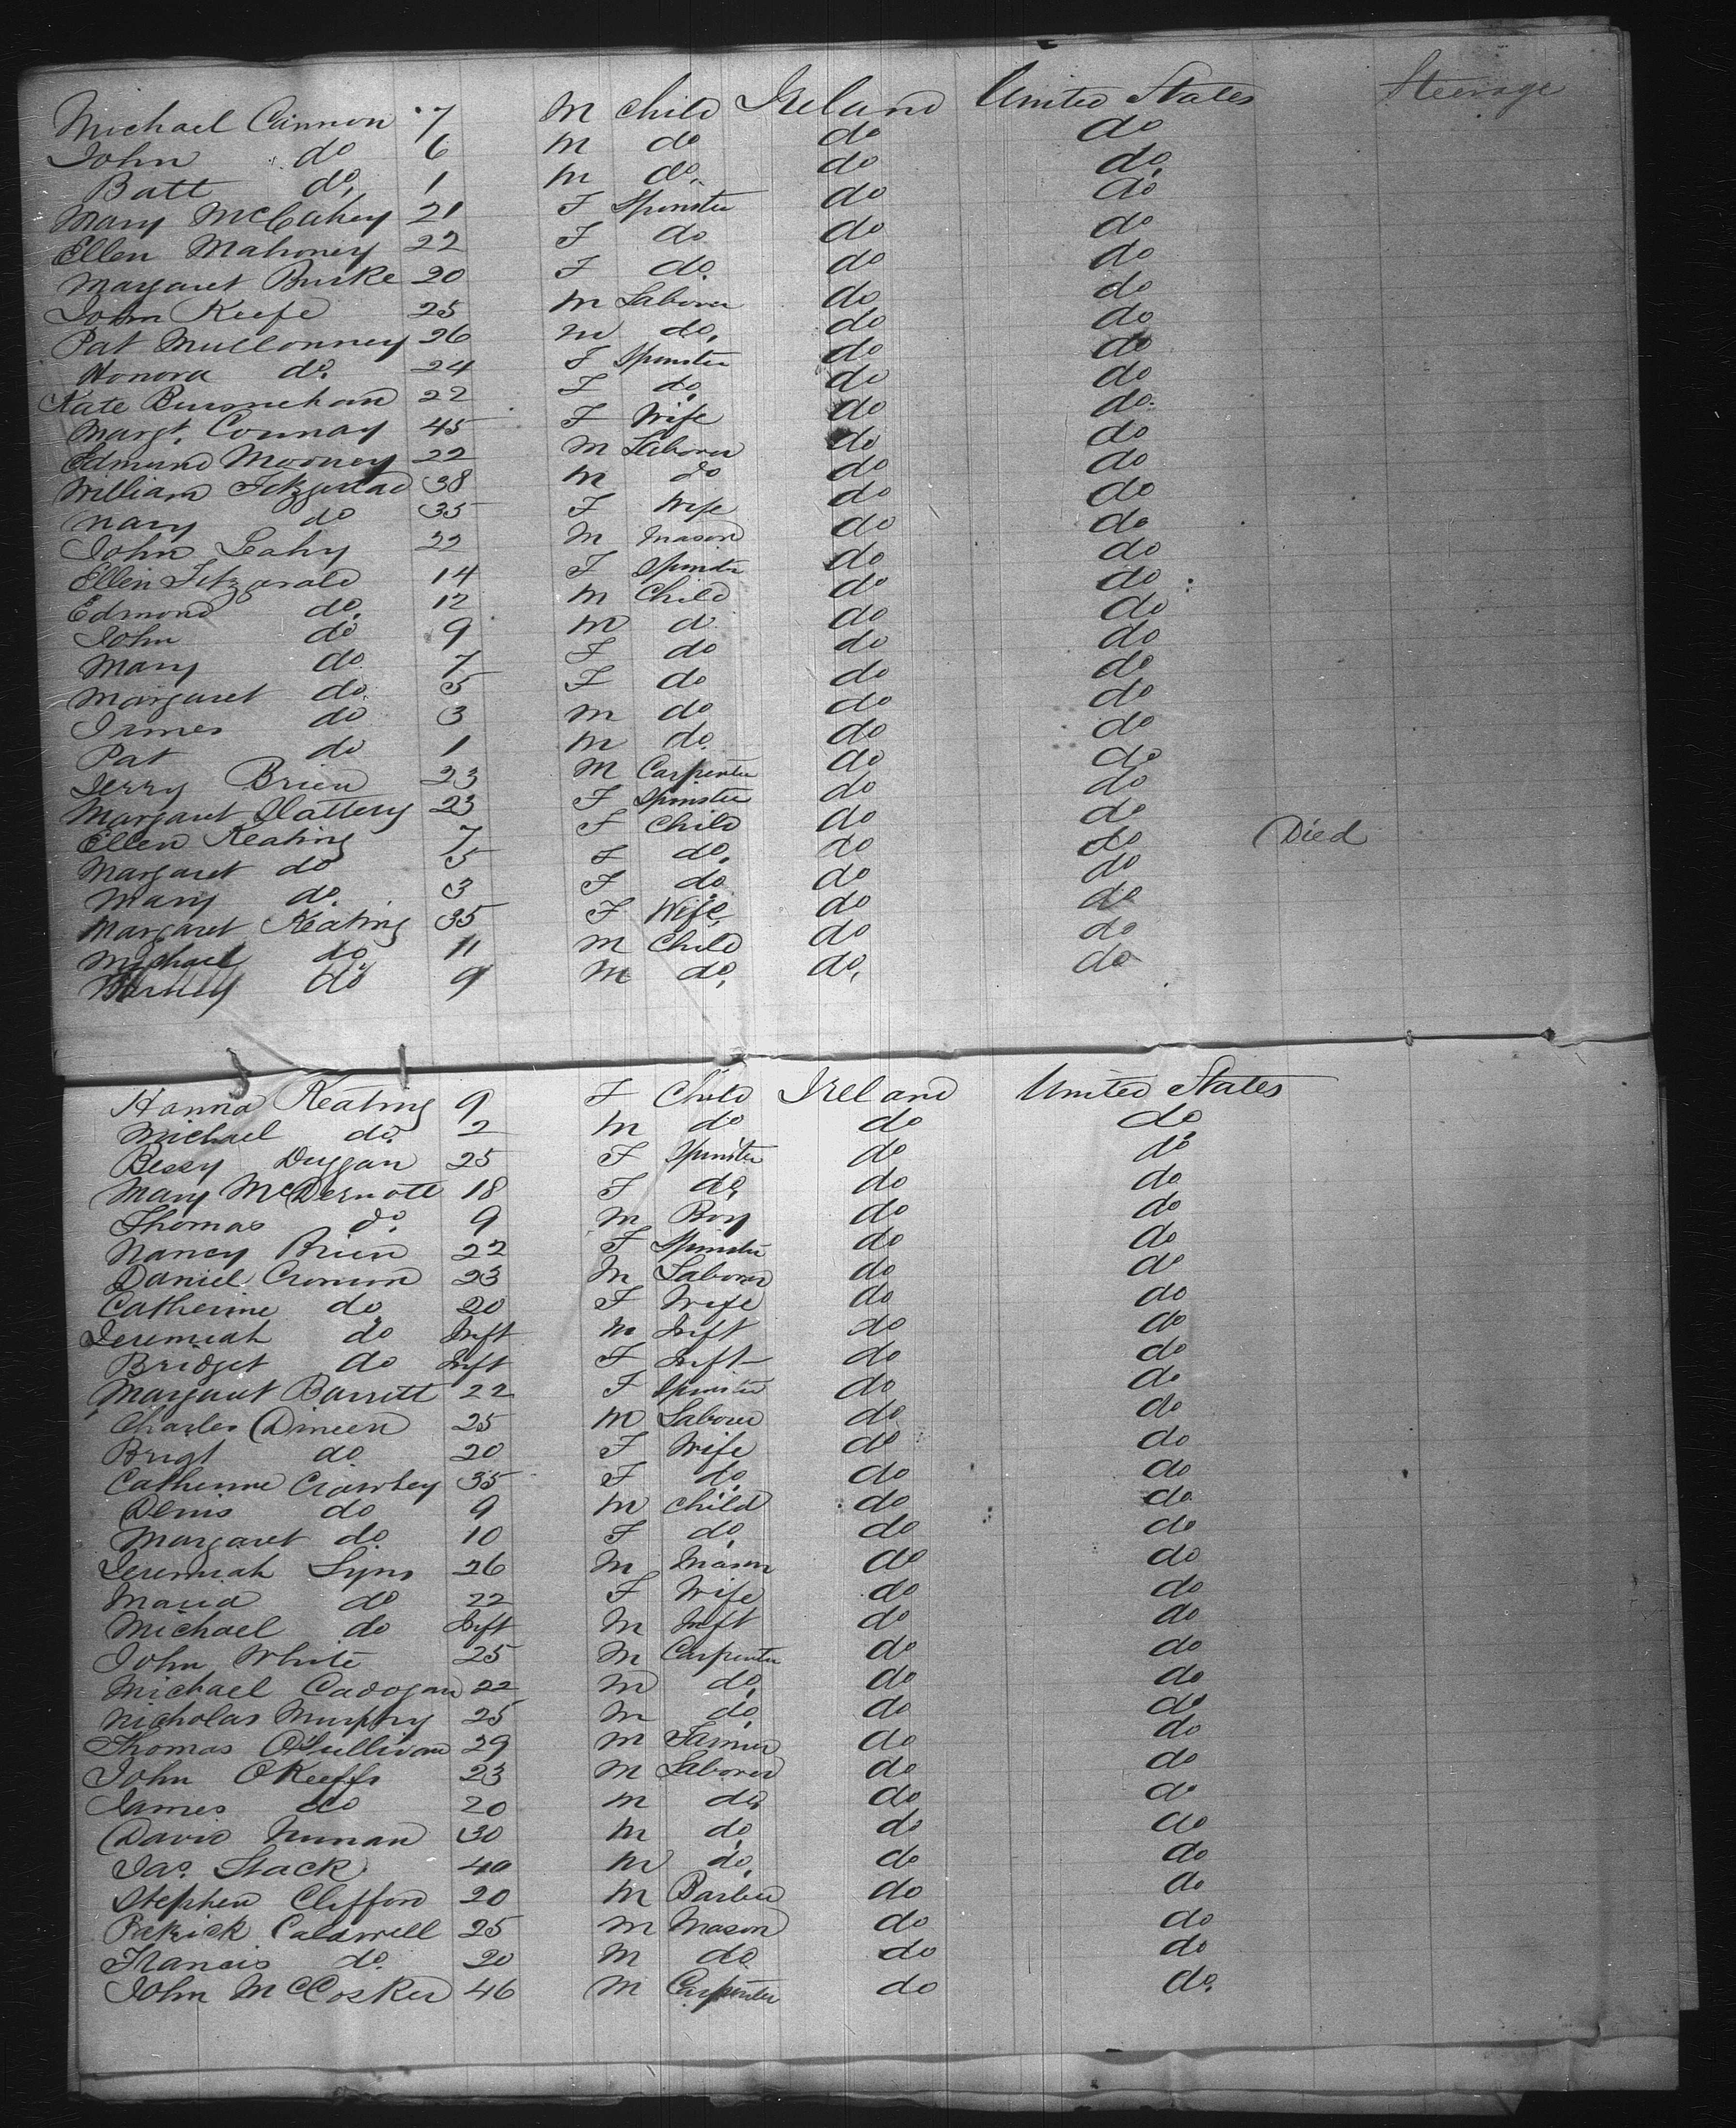 Michael Cannon 7 M Child Ireland United States Steerage
John do 6 M do do do
Batt do, 1 M do. do do
Mary McCahey 21 F Spinster do do
Ellen Mahoney 22 F do do do
Margaret Burke 20 F do. do do
John Keefe 25 M Laborer do do
Pat Mullonney 26 M do. do do
Honora do. 24 F Spinster do do
Kate 22 F do do do
Margt. Connay 45 F Wife do do
Edmund Mooney 22 M Laborer do do
William Fitzgerald 38 M do do do
Mary do 35 F Wife do do
John Leahy 22 M Mason do do
Ellen Fitzgerald 14 F Spinster do do
Edmond do. 12 M Child do do
John do 9 M d do do
Mary do 7 F do do do
Margaret do 5 F do do do
James do 3 M do do do
Pat do 1 M do. do do
Jerry Brien 23 M Carpenter do do
Margaret Slattery 23 F Spinster do do
Ellen Keating 7 F Child do do
Margaret do 5 F do. do do Died
Mary do. 3 F do do do
Margaret Keating 35 F Wife do do
Michael do 11 M Child do do
do 9 M do, do, do
Hanna Keating 9 F Child Ireland United States
Michael do. 2 M do do do
Bessy Duggan 25 F Spinster do do
Mary McDermott 18 F do, do do
Thomas do. 9 M Boy do do
Nancy Brien 22 F Spinster do do
Daniel Cronin 23 M Laborer do do
Catherine do, 20 F Wife do do
Jeremiah do Inft M Inft do do
Bridget do Inft F Inft do do
Margaret Barrett 22 F Spinster do do
Charles Dineen 25 M Laborer do do
Brigt do 20 F Wife do do
Catherine Crowley 35 F do, do do
Denis do 9 M Child do do
Margaret do. 10 F do, do do
Jeremiah Lyns 26 M Mason do do
Maria do 22 F Wife do do
Michael do Inft M Inft do do
John White 25 M Carpenter do do
Michael Cadogan 22 M do, do do
Nicholas Murphy 25 M do, do do
Thomas OSullivan 29 M Farmer do do
John OKeeffe 23 M Laborer do do
James do 20 M do, do do
David Nunan 30 M do, do do
Jas. Stack 40 M do, do do
Stephen Clifford 20 M Barber do do
Patrick Caldwell 25 M Mason do do
Francis do. 20 M do do do
John McCosker 46 M Carpenter do do.